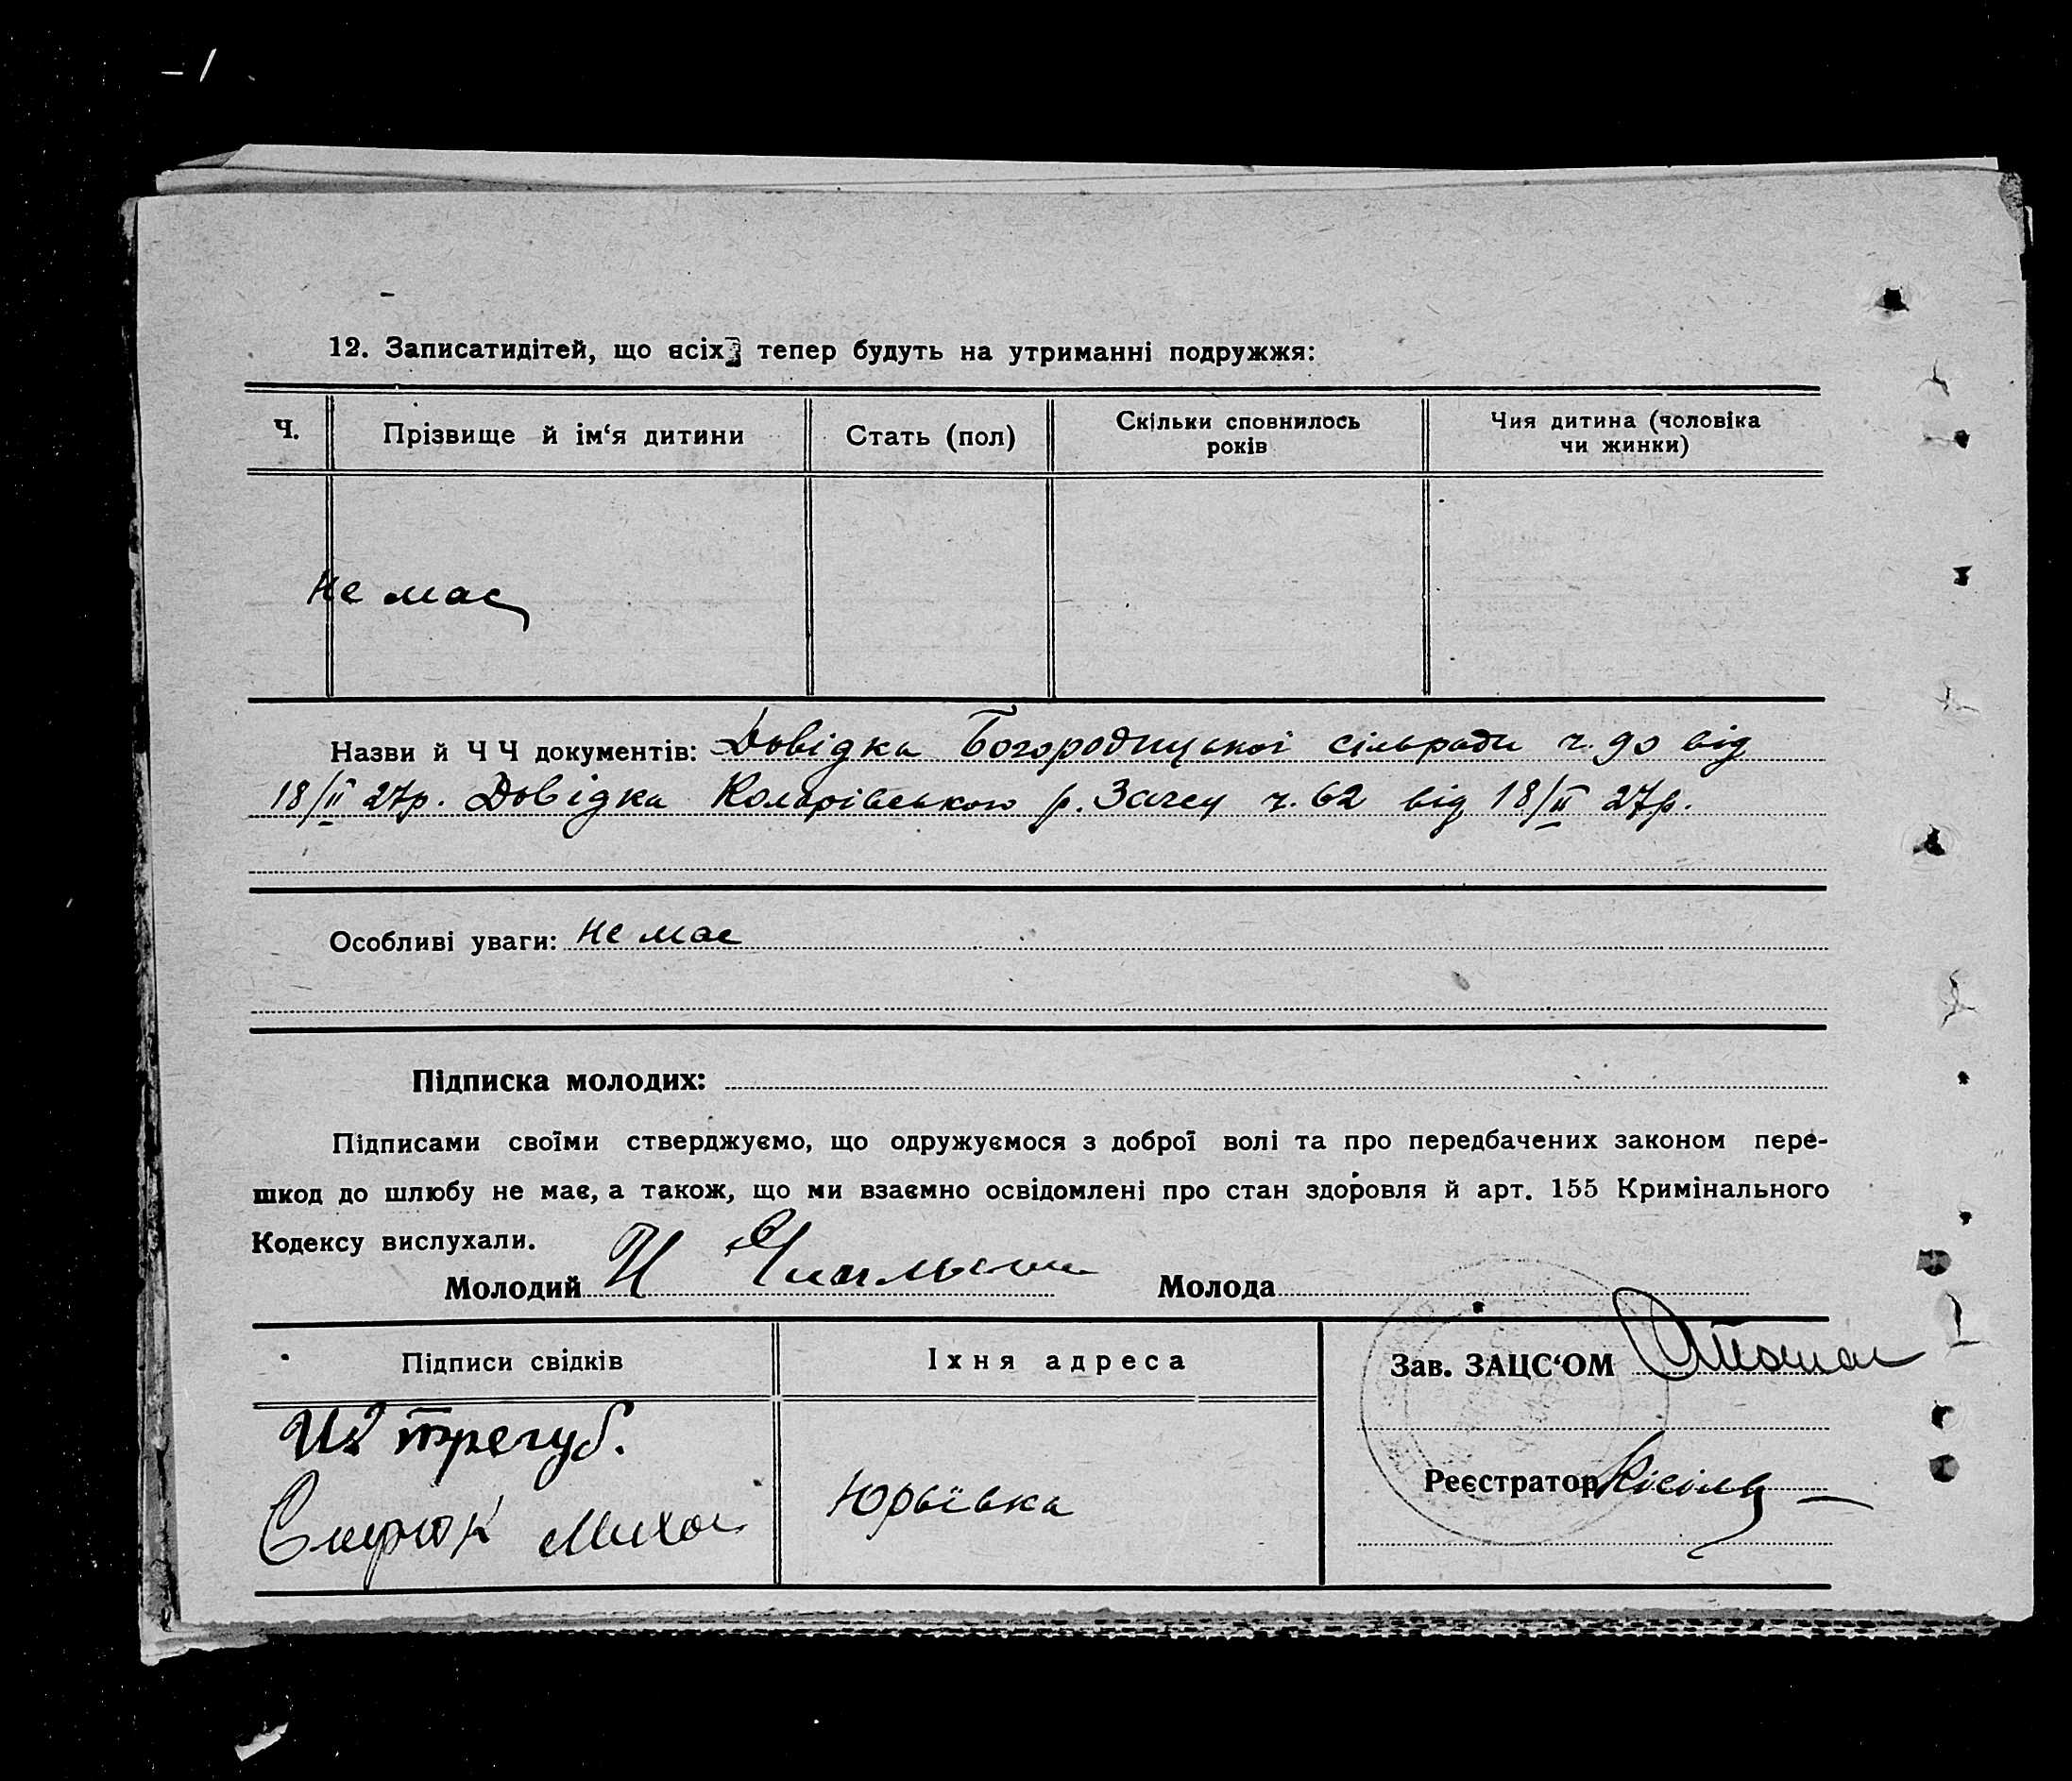 12. Записатидітей, що всіх тепер будуть на утриманні подружжя:
Ч.
Прізвище й ім‘я дитини
Стать (пол)
Скільки сповнилось
років
Чия дитина (чоловіка
чи жинки)
не має
Назви й Ч Ч документів: Довідка Богородицької сільради ч. 90 від
18/II 27р. Довідка Коларівського р. Загсу ч. 62 від 18/II 27р.
Особливі уваги: не має
Підписка молодих:
Підписами своїми стверджуємо, що одружуємося з доброї волі та про передбачених законом пере-
шкод до шлюбу не має, а також, що ми взаємно освідомлені про стан здоровля й арт. 155 Кримінального
Кодексу вислухали.
Молодий И
Молода
Підписи свідків
Їхня адреса
Зав. ЗАЦС‘ОМ
трегуб.
Михаи
Юрьївка
Реєстратор Кісіль